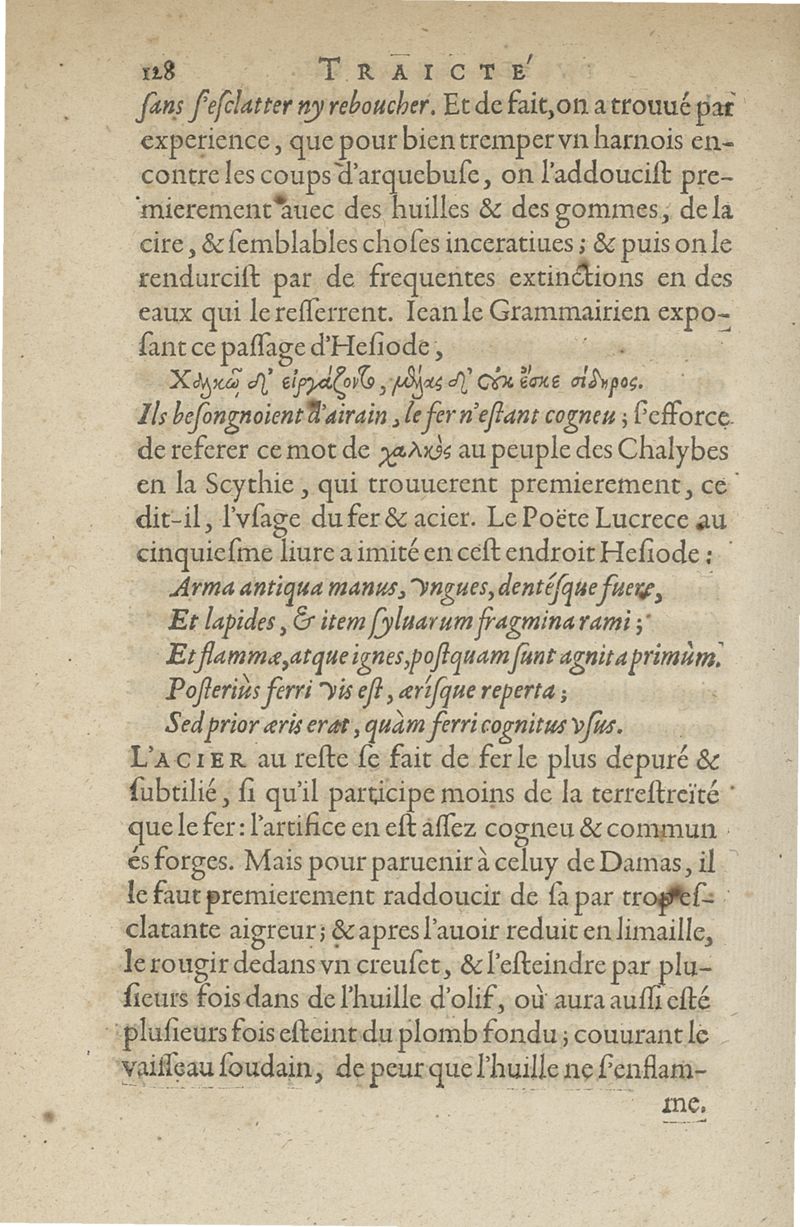 128 TRAICTÉ
ſans ſ'eſclatter ny reboucher. Et de fait, on a trouué par
experience, que pour bien tremper vn harnois en-
contre les coups d'arquebuſe, on l'addouciſt pre-
mierement auec des huilles & des gommes, de la
cire, & ſemblables choſes inceratiues; & puis on le
rendurciſt par de frequentes extinctions en des
eaux qui le reſſerrent. Iean le Grammairien expo-
ſant ce paſſage d'Heſiode,
Χαλκῷ δ' εἰργάζοντο, μέλας δ' οὐκ ἔσκε σίδηρος.
Ils beſongnoient d'airain, le fer n'eſtant cogneu; ſ'efforce
de referer ce mot de χαλκὸς au peuple des Chalybes
en la Scythie, qui trouuerent premierement, ce
dit-il, l'vſage du fer & acier. Le Poëte Lucrece au
cinquieſme liure a imité en ceſt endroit Heſiode:
Arma antiqua manus, vngues, dentéſque fuere,
Et lapides, & item ſyluarum fragmina rami;
Et flammæ, atque ignes, poſtquam ſunt agnita primùm.
Poſteriùs ferri vis eſt, æríſque reperta;
Sed prior æris erat, quàm ferri cognitus vſus.
L'ACIER au reſte ſe fait de fer le plus depuré &
ſubtilié, ſi qu'il participe moins de la terreſtreïté
que le fer: l'artifice en eſt aſſez cogneu & commun
és forges. Mais pour paruenir à celuy de Damas, il
le faut premierement raddoucir de ſa par trop eſ-
clatante aigreur; & apres l'auoir reduit en limaille,
le rougir dedans vn creuſet, & l'eſteindre par plu-
ſieurs fois dans de l'huille d'olif, où aura auſſi eſté
pluſieurs fois eſteint du plomb fondu; couurant le
vaiſſeau ſoudain, de peur que l'huille ne ſ'enflam-
me.